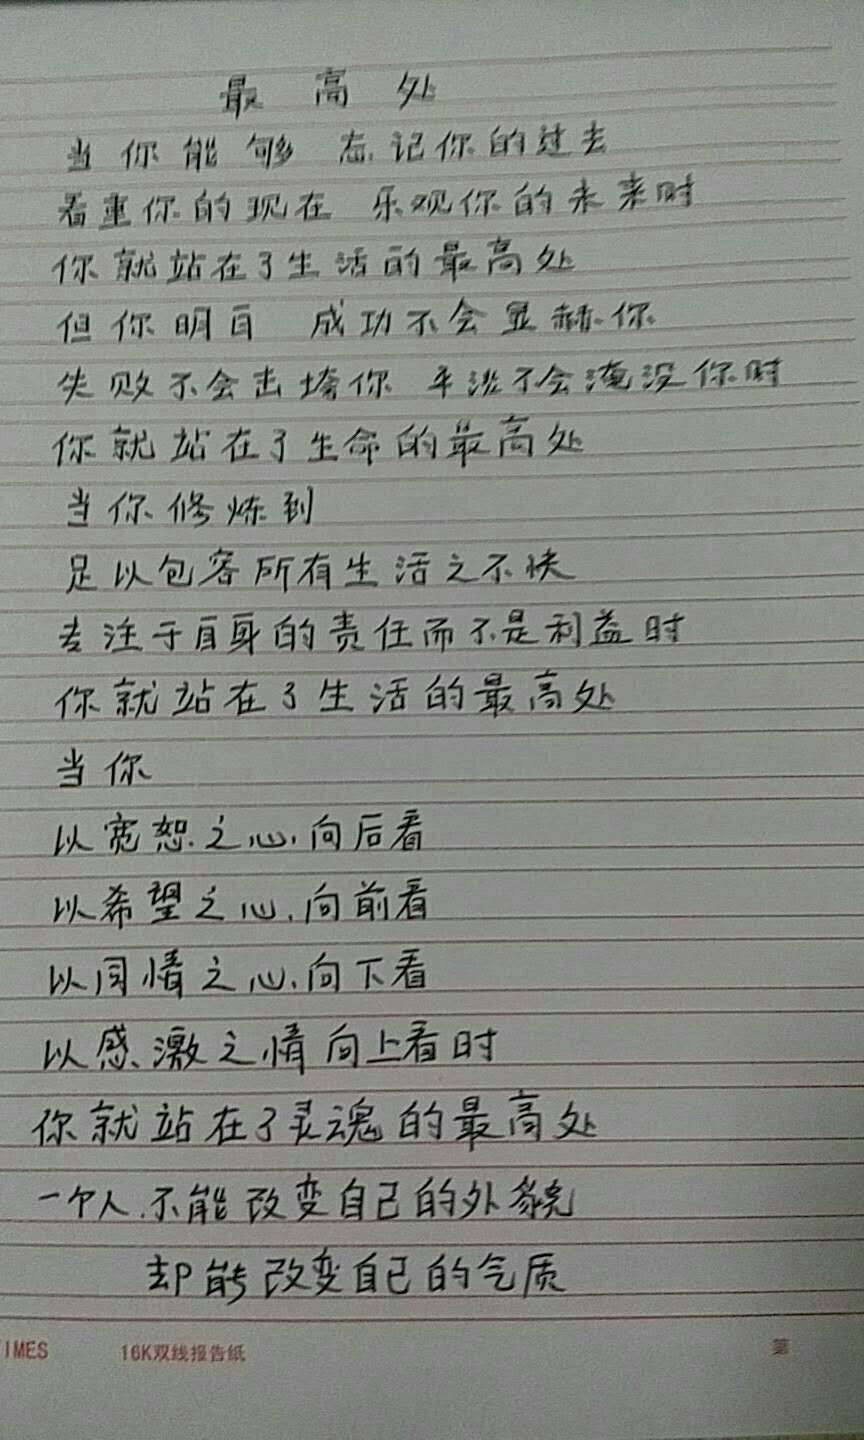 最高处
当你能够 忘记你的过去
看重你的现在 乐观你的未来时
你就站在了生活的最高处
但你明白 成功不会显赫你
失败不会击垮你 平淡不会淹没你时
你就站在了生命的最高处
当你修炼到
足以包容所有生活之不快
专注于自身的责任而不是利益时
你就站在了生活的最高处
当你
以宽恕之心,向后看
以希望之心,向前看
以同情之心,向下看
以感激之情向上看时
你就站在了灵魂的最高处
一个人,不能改变自己的外貌
却能改变自己的气质
TIMES 16K双线报告纸 第